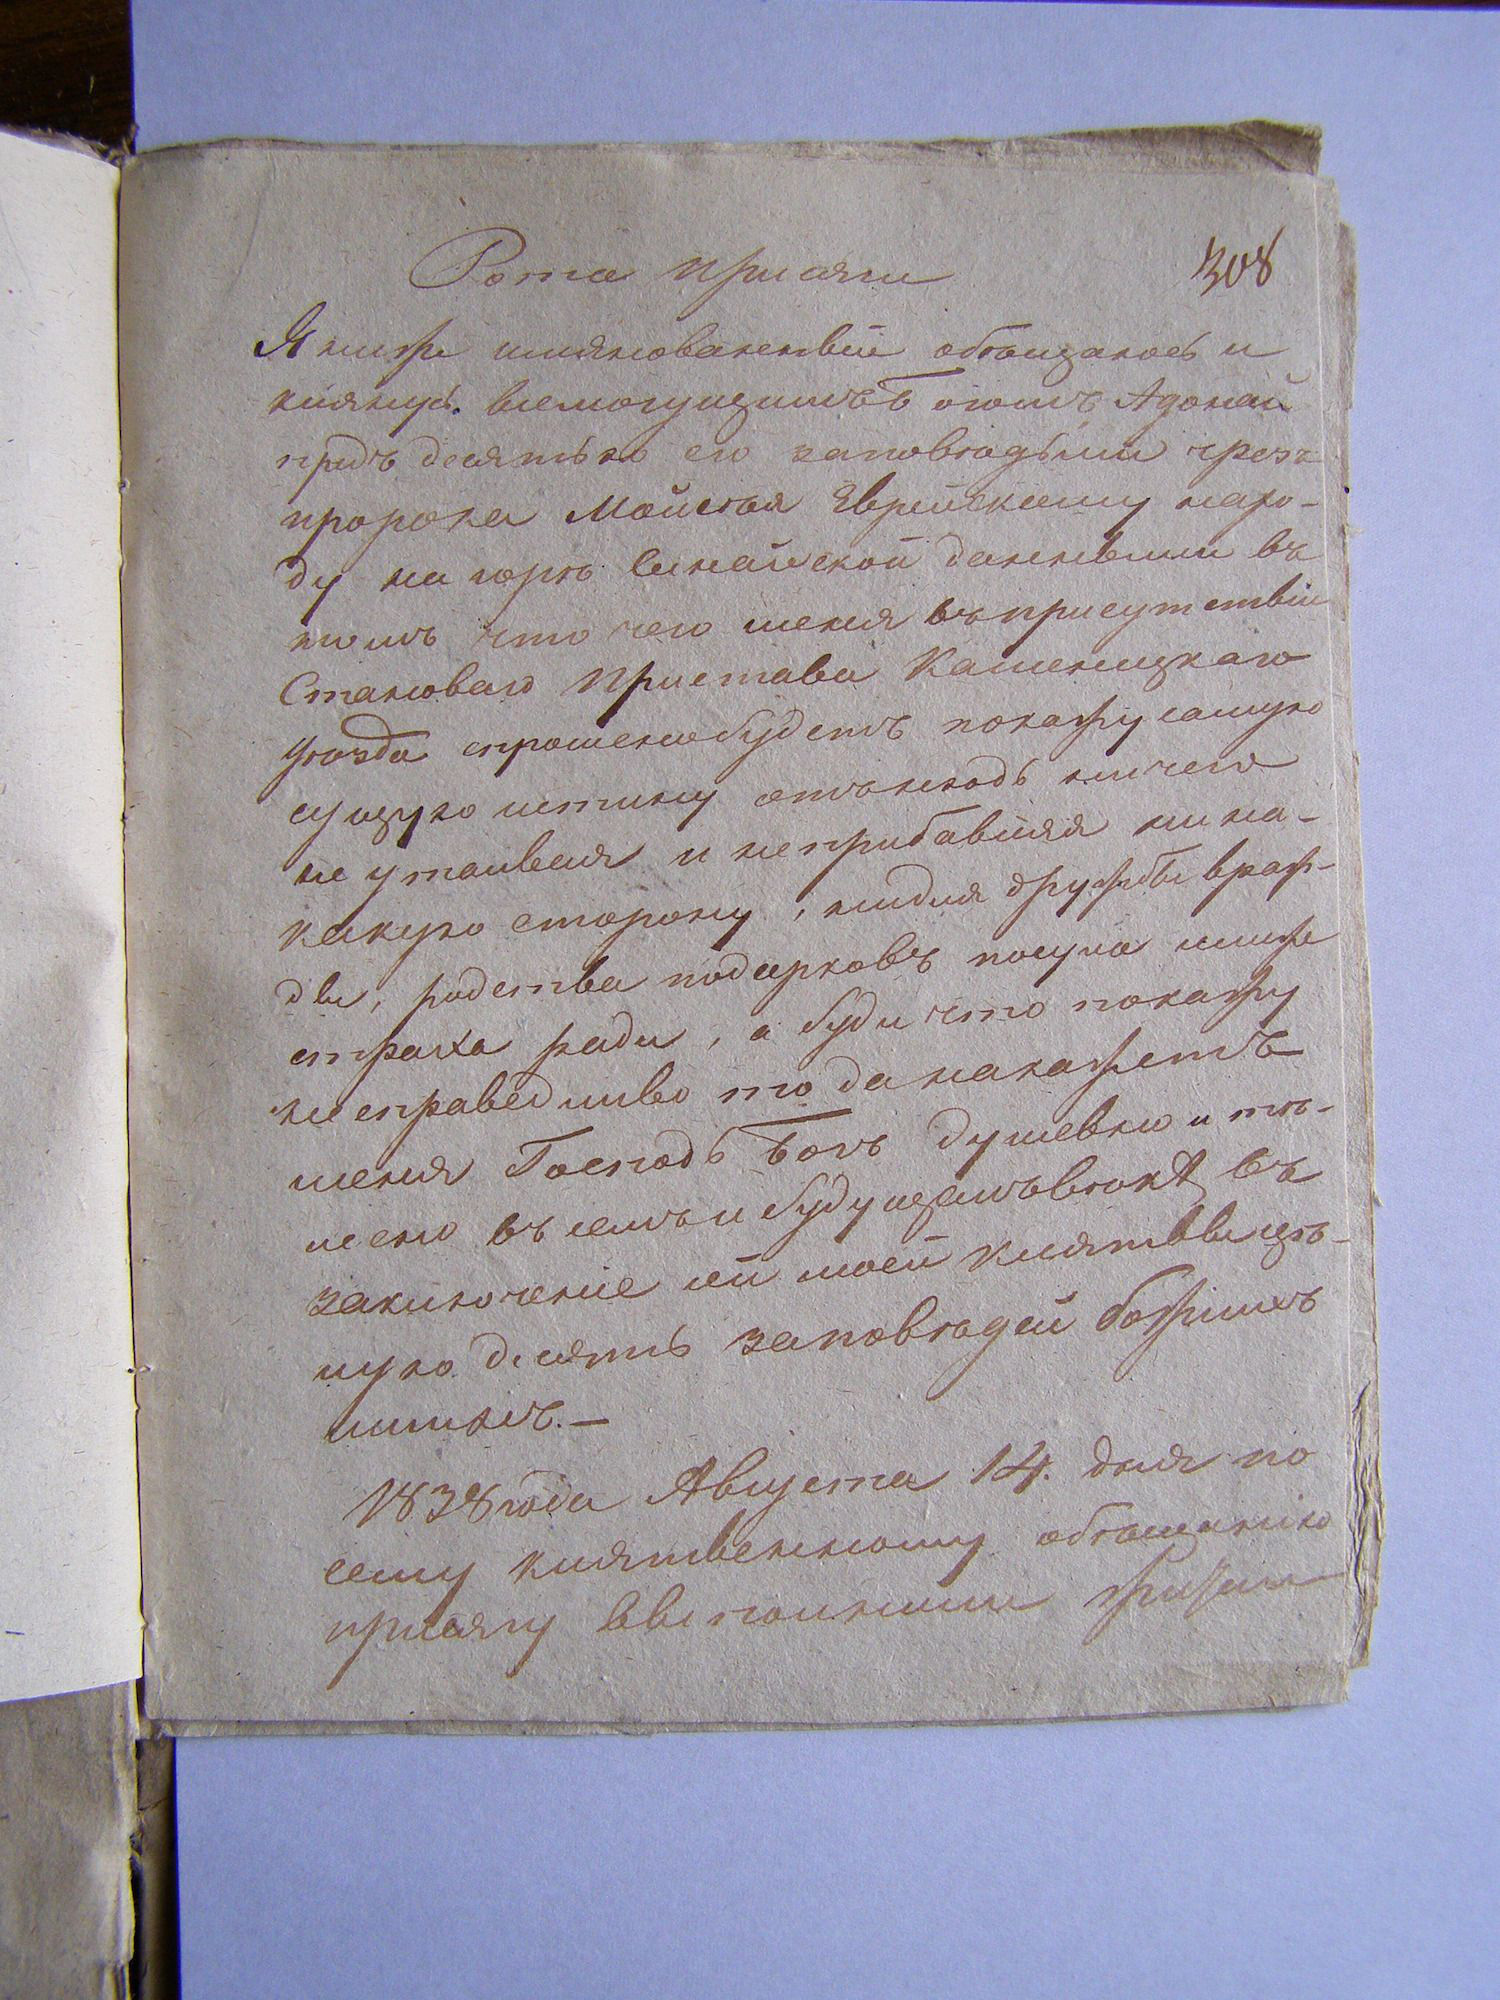 Рота присяги
308
Я ниже имянованный обѣщаюсь и
клянусь всемогущимъ Богомъ Адонай
предъ десятью его заповѣдьми чрезъ
пророка Мойсѣя Еврейскому наро-
ду на горѣ Синайской данными въ
томъ что чего меня въ присутствіи
Становаго Пристава Каменицкаго
уѣзда спрошено будетъ покажу самую
сущую истину отънюдь ничего
не утаивая и неприбавляя ни на-
какую сторону, нидля дружбы враж-
ды, родства подарковъ посула ниже
страха ради, а буди что покажу
несправедливо то да накажетъ
меня Господь Богъ душевно и тѣ-
лесно въ семъ и будущемъ вѣкѣ въ
заключеніе сей моей клятвы цѣ-
лую десять заповѣдей божіихъ
аминь.—
1838 года Августа 14. дня по
сему клятвенному обѣщанію
присягу выполнили